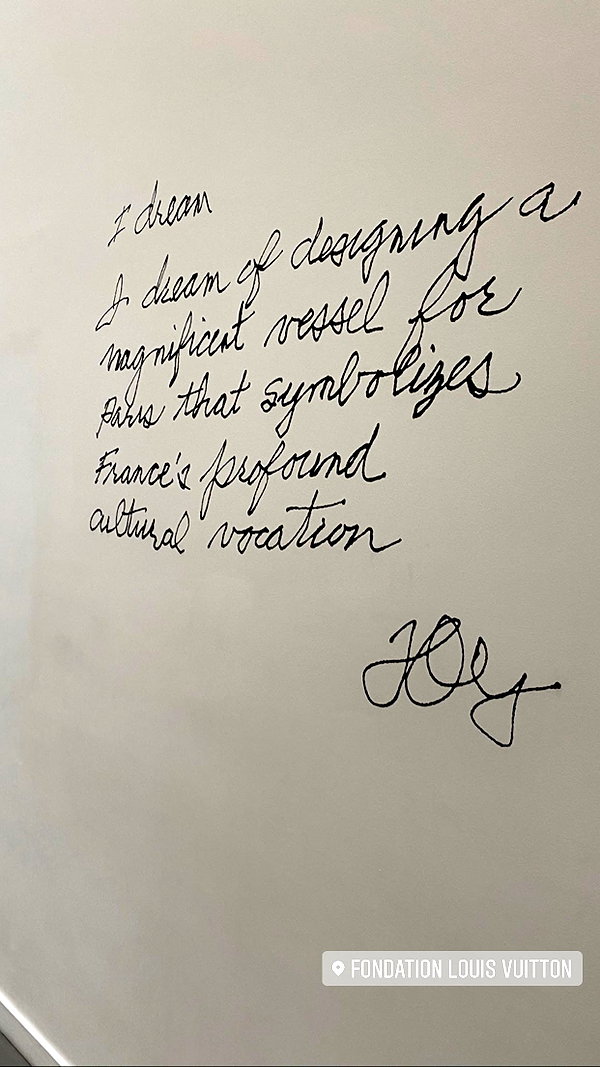 I dream
I dream of designing a
magnificent vessel for
Paris that symbolizes
France's profound
cultural vocation
FONDATION LOUIS VUITTON